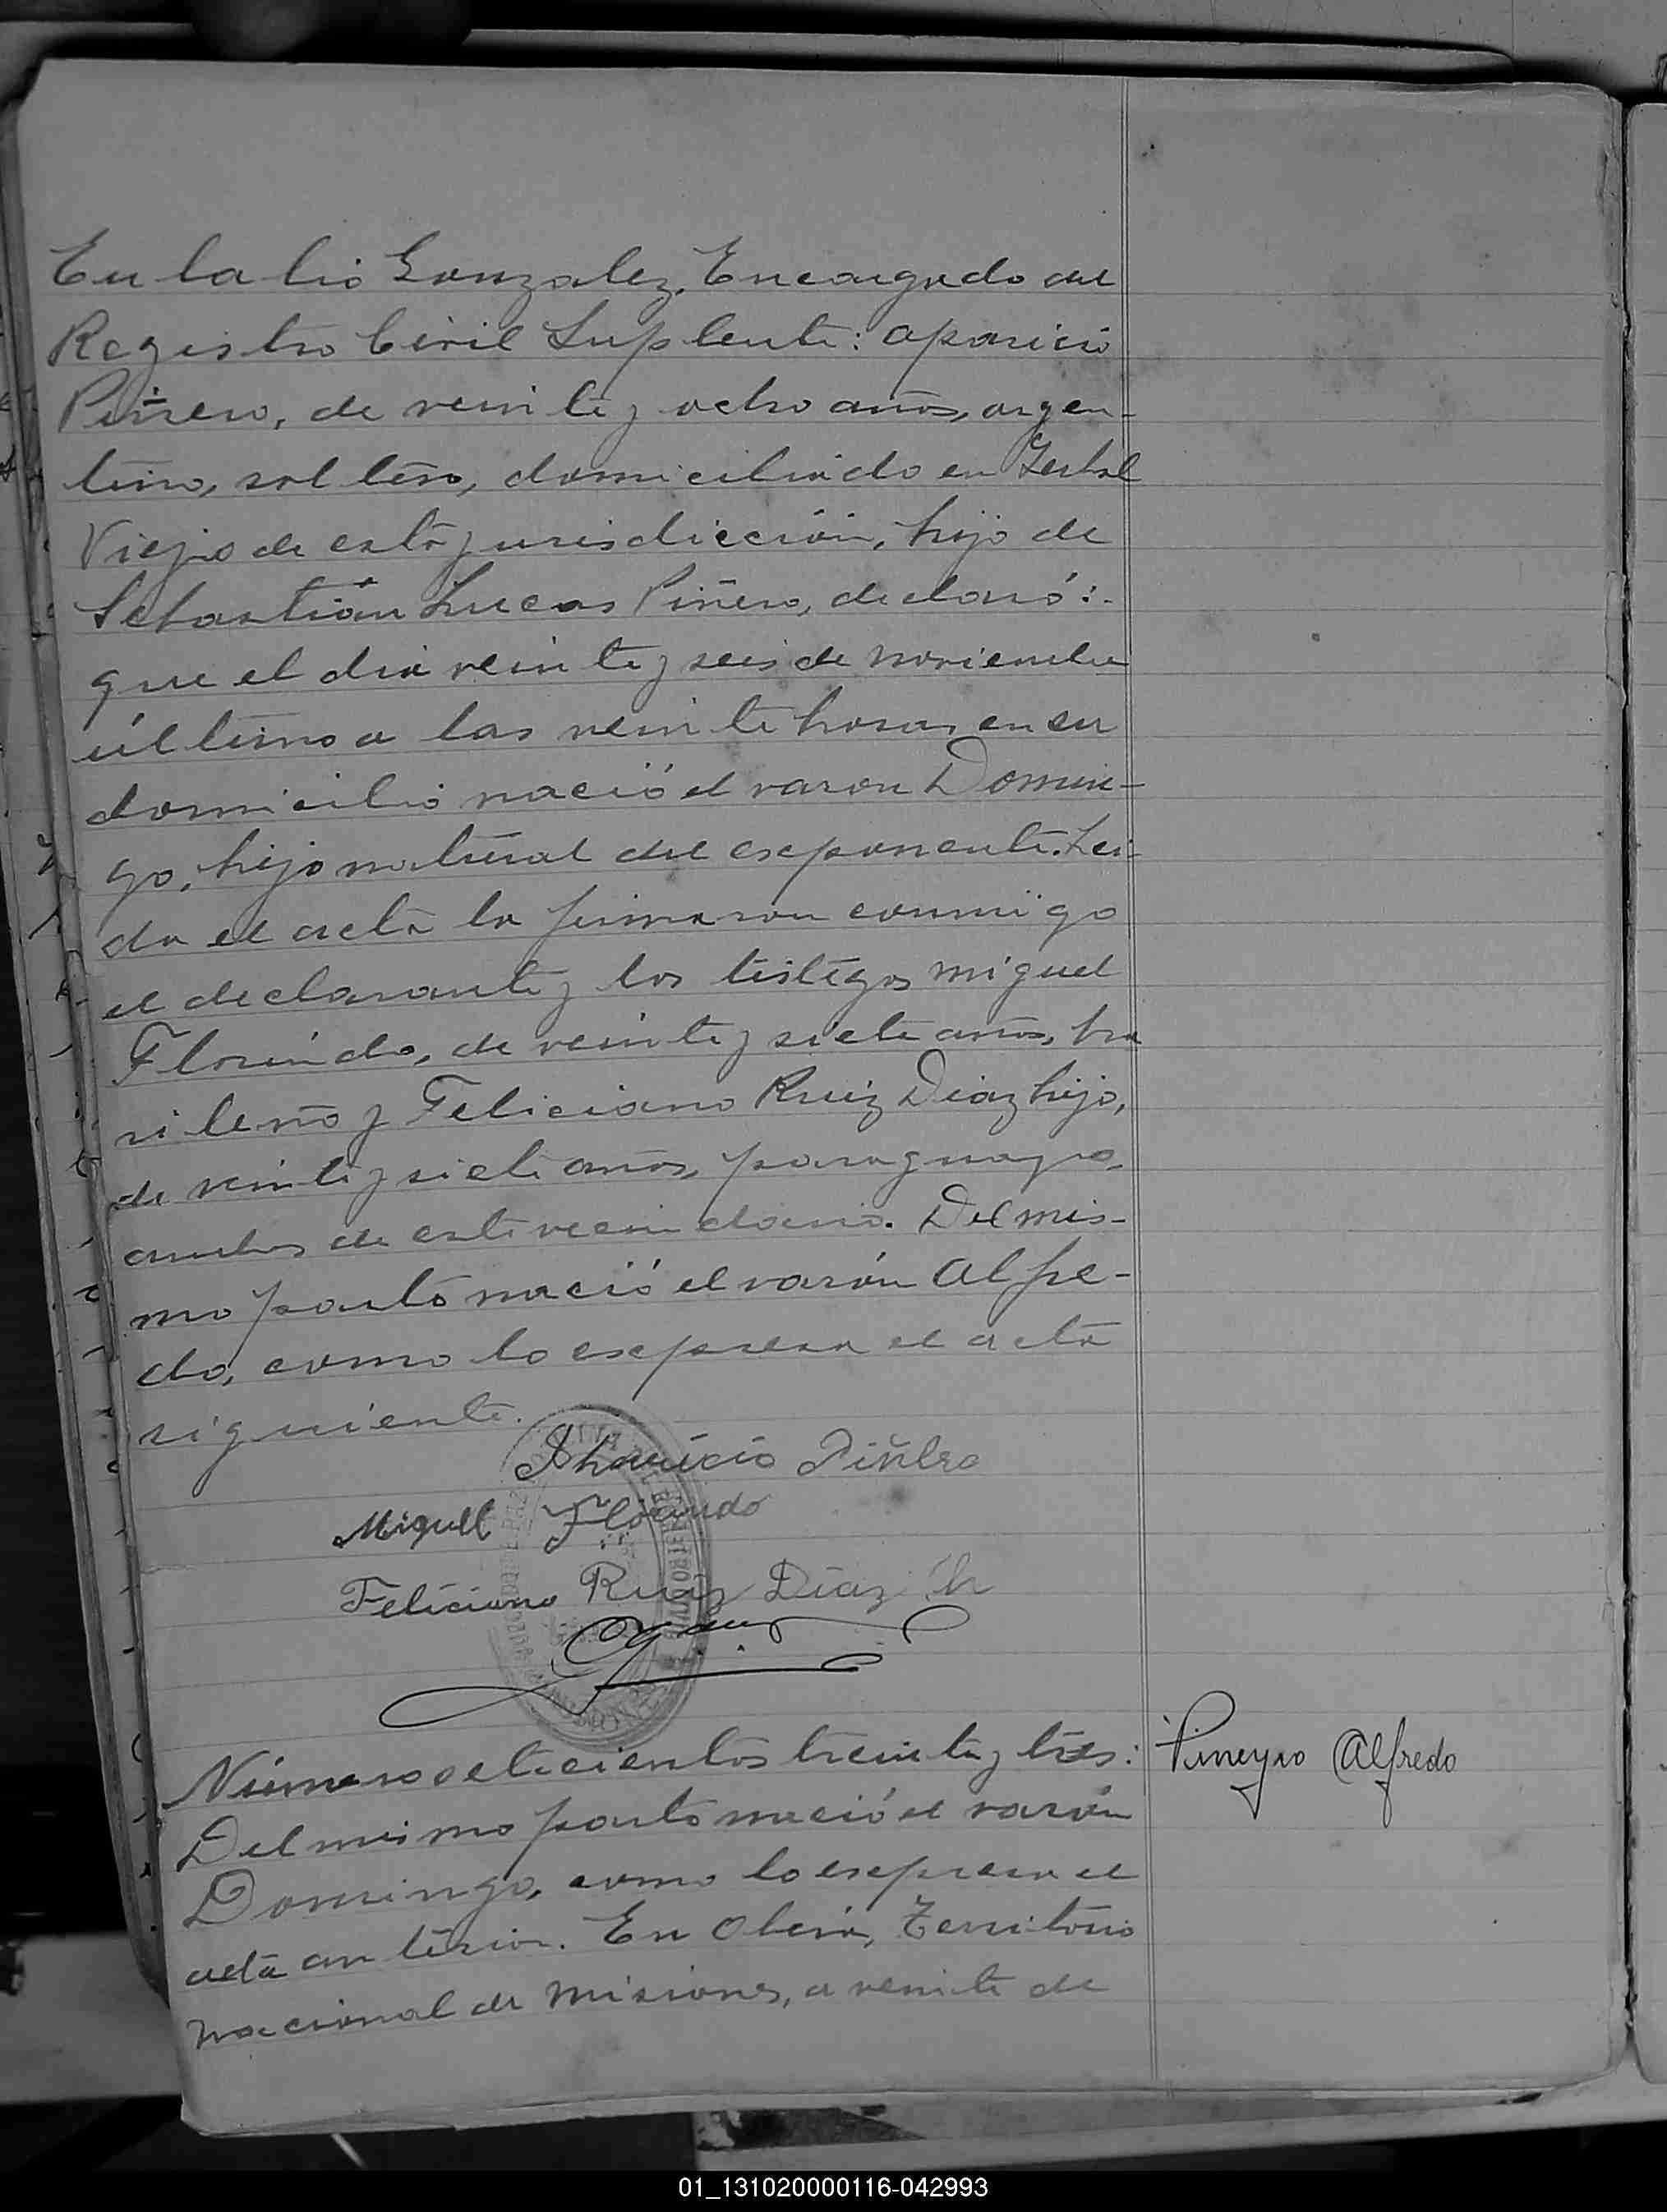 Eulalio Gonzalez, Encargado del
Registro Civil Suplente: aparicio
Piñero, de veinte y ocho años, argen-
tino, soltero, domiciliado en Yerbal
Viejo de esta jurisdicción, hijo de
Sebastián Lucas Piñero, declaró:
que el dia veinte y seis de noviembre
último a las veinte horas en su
domicilio nació el varon Domin-
go, hijo natural del exponente. Lei-
da el acta la firmaron conmigo
el declarante y los testigos miguel
Florindo, de veinte y siete años, bra
sileño y Feliciano Ruiz Diaz hijo,
de veinte y siete años, paraguayo,
ambos de este vecindario. Del mis-
mo parto nació el varón alfre-
do, como lo expresa el acta
siguiente.
Aparicio Piñero
Miguel Florindo
Feliciano Ruiz Díaz h
Número setecientos treinta y tres:
Pineyro Alfredo
Del mismo parto nació el varón
Domingo, como lo expresa el
acta anterior. En Oberá, Territorio
nacional de misiones, a veinte de
01_131020000116-042993